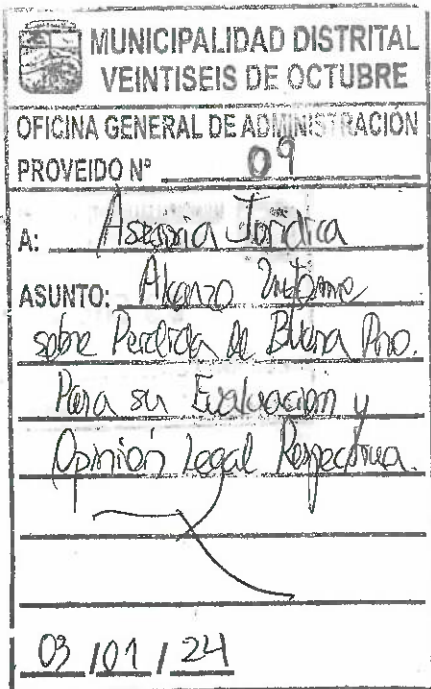 MUNICIPALIDAD DISTRITAL
VEINTISEIS DE OCTUBRE
OFICINA GENERAL DE ADMINISTRACIÓN
PROVEIDO N° 09
A: Asesoria Jurídica
ASUNTO: Alcanzo Informe
sobre Perdida de Buena Pro.
Para su Evaluación y
Opinión Legal Respectiva.
03 / 01 / 24